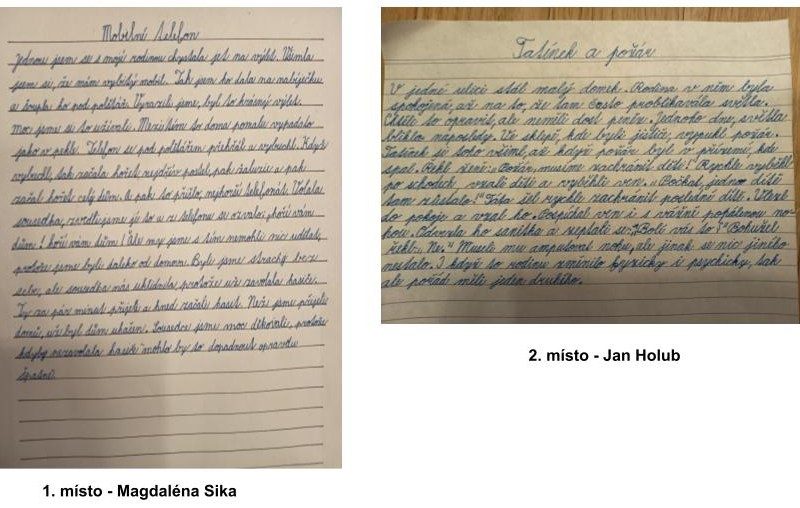 Mobilní telefon
Jednou jsem se s mojí rodinou chystala jet na výlet. Všimla
jsem se, že mám vybitý mobil. Tak jsem ho dala na nabíječku
a šoupla ho pod polštář. Vyrazili jsme, byl to krásný výlet.
Moc jsme si to užívali. Mezitím to doma pomalu vypadalo
jako v pekle. Telefon se pod polštářem přehřál a vybuchl. Když
vybuchl, tak začala hořet nejdřív postel, pak žaluzie a pak
začal hořet celý dům. A pak to přišlo, nejhorší telefonát. Volala
sousedka, zvedli jsme jí to a z telefonu se ozvalo, „hoří vám
dům! hoří vám dům! Ale my jsme s tím nemohli nic udělat,
protože jsme byli daleko od domova. Byli jsme strachy bez
sebe, ale sousedka nás uklidnila protože už zavolala hasiče.
Ty za pár minut přijeli a hned začali hasit. Než jsme přijeli
domů, už byl dům uhašen. Sousedce jsme moc děkovali, protože
kdyby nezavolala hasiče mohlo by to dopadnout opravdu
špatně.
1. místo - Magdaléna Sika
Tatínek a požár
V jedné ulici stál malý domek. Rodina v něm byla
spokojená, až na to, že tam často problikávala světla.
Chtěli to opravit, ale neměli dost peněz. Jednoho dne, světla
blikla naposledy. Ve sklepě, kde byli jističe, vypukl požár.
Tatínek si toho všiml, až když požár byl v přízemí, kde
spal. Řekl ženě: „Požár, musíme zachránit děti!" Rychle vyběhli
po schodech vzali děti a vyběhli ven. „Počkat, jedno dítě
tam zůstalo!" Táta šel rychle zachránit poslední dítě. Vlezl
do pokoje a vzal ho. Pospíchal ven i s vážně popálenou no-
hou. Odvezla ho sanitka a zeptali se: „Bolí vás to?" Bohužel
řekl: „Ne." Museli mu amputovat nohu, ale jinak se nic jiného
nestalo. I když to rodinu změnilo fyzicky i psychicky, tak
ale pořád měli jeden druhého.
2. místo - Jan Holub